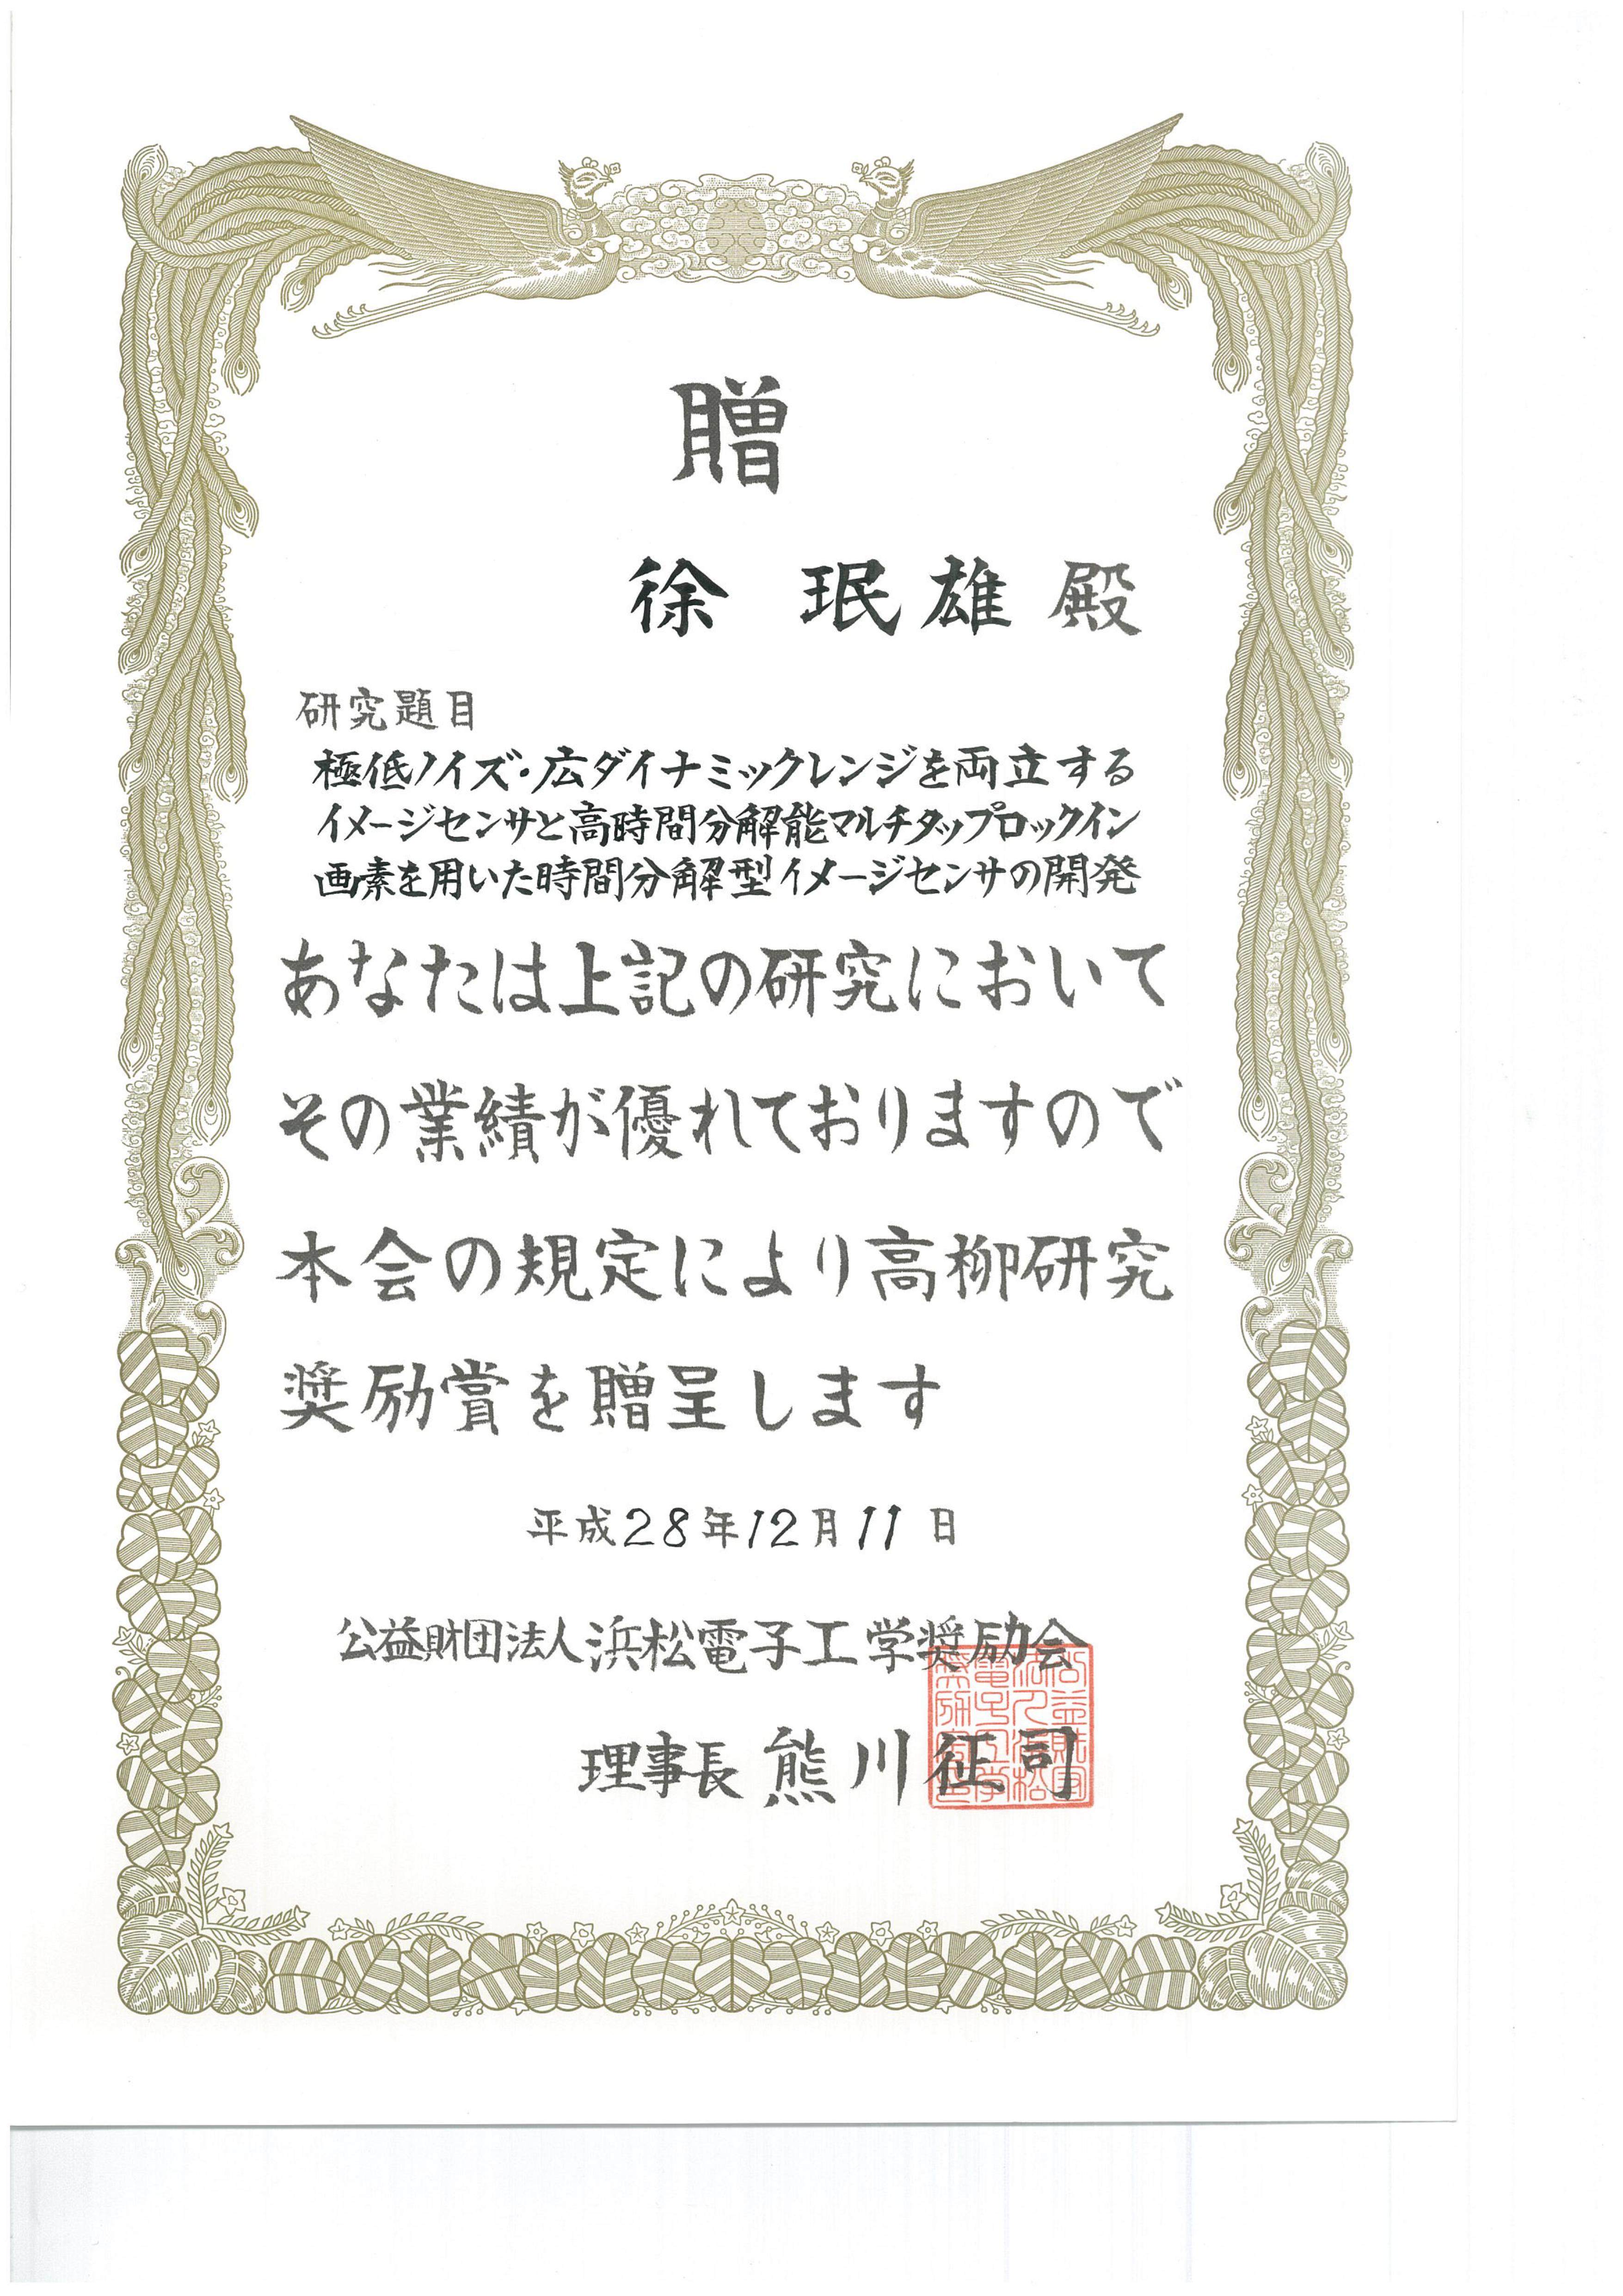 贈
徐 珉雄 殿
研究題目
極低ノイズ・広ダイナミックレンジを両立する
イメージセンサと高時間分解能マルチタップロックイン
画素を用いた時間分解型イメージセンサの開発
あなたは上記の研究において
その業績が優れておりますので
本会の規定により高柳研究
奨励賞を贈呈します
平成28年12月11日
公益財団法人浜松電子工学奨励会
理事長 熊川征司